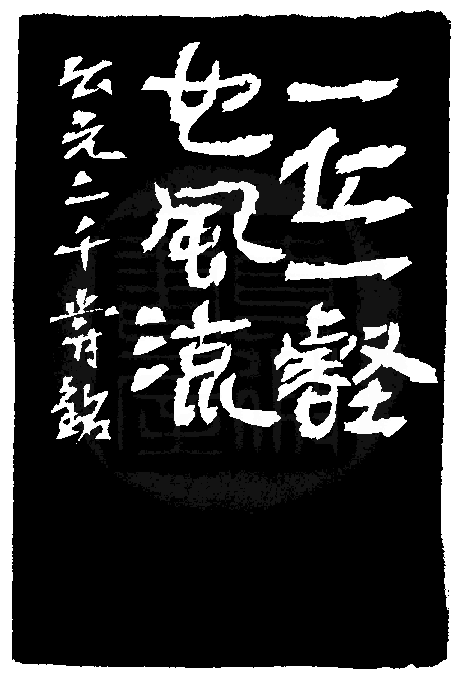 一丘一壑
也風流
公元二千 銘